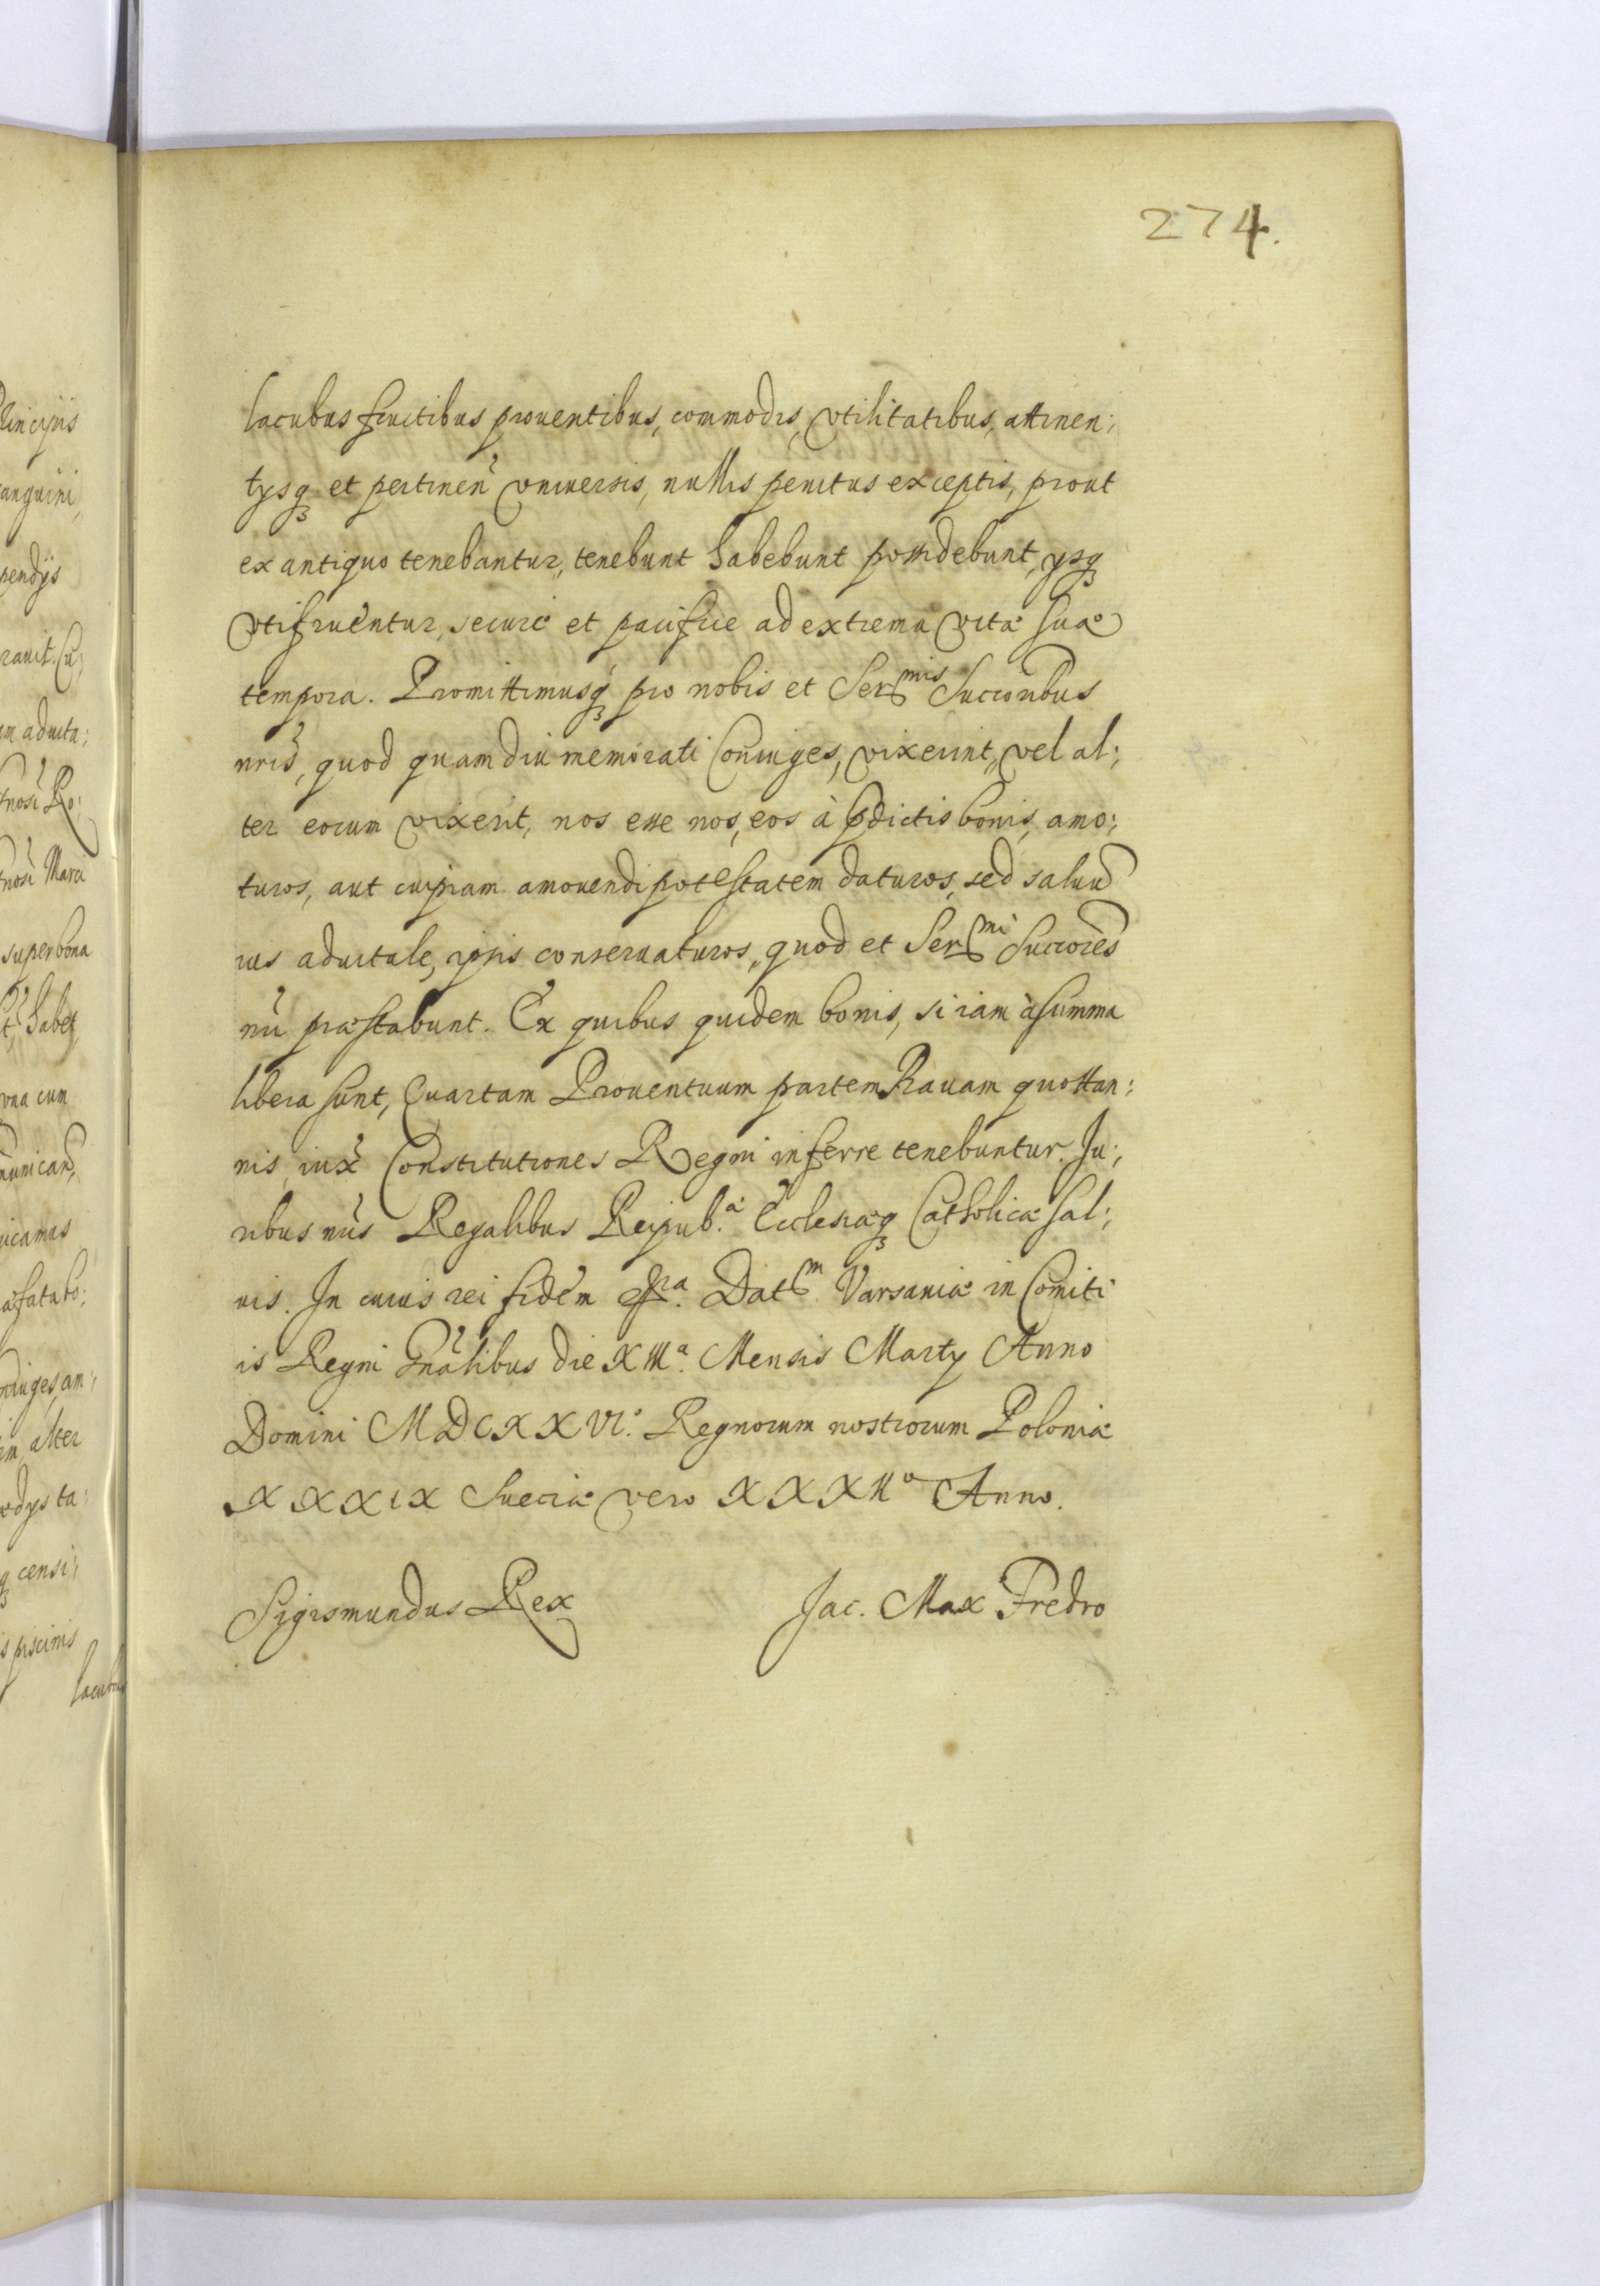 274.
lacubus fructibus prouentibus, commodis, vtilitatibus, attinen:
tysq3 et pertinen̄ vniuersis, nullis penitus exceptis, prout
ex antiquo tenebantur, tenebunt habebunt possidebunt, ysq3
vtifruentur, securè et pacifice ad extrema vitæ suæ
tempora. Promittimusq3 pro nobis et Sermis Succoribus
nris, quod quamdiu memorati Coniuges, vixerint, vel al:
ter eorum vixerit, nos esse nos, eos à pdictis bonis, amo:
turos, aut cuipiam amouendi potestatem daturos, sed saluū
ius aduitale, ipsis conseruaturos, quod et Sermi Succores
nri præstabunt. Ex quibus quidem bonis, si iam à summa
libera sunt, Quartam Prouentuum partem Rauam quottan:
nis, iuxᵃ Constitutiones Regni inferre tenebuntur. Ju:
ribus nris Regalibus Reipub.æ Ecclesiæq3 Catholicæ sal:
uis. In cuius rei fidem &ra. Datm Varsauiæ in Comiti
is Regni Gnalibus die XIIIa. Mensis Marty Anno
Domini MDCXXVI. Regnorum nostrorum Poloniæ
XXXIX Sueciæ vero XXXIIo Anno.
Sigismundus Rex Jac. Max Fredro
lincipiis
anguini,
pendijs
rauit. Cū
m aduita:
Ro:
Marci
super bona
habet
vna cum
municand
icamus
æfatabo:
niuges, am:
im, alter
odys ta:
q3 censi:
s piscinis
lacubus